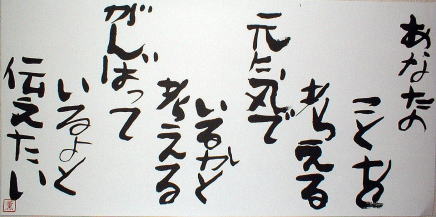 あなたの
ことを
考える
元気で
いるかと
考える
がんばって
いるよと
伝えたい